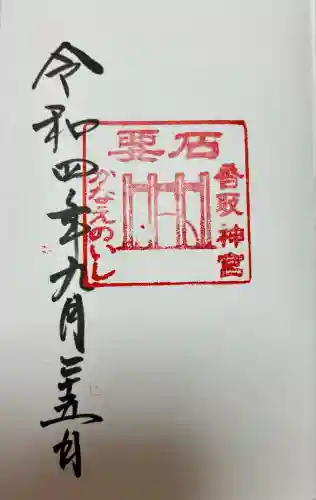 香取神宮
要石
かなめのいし
令和四年九月二十五日